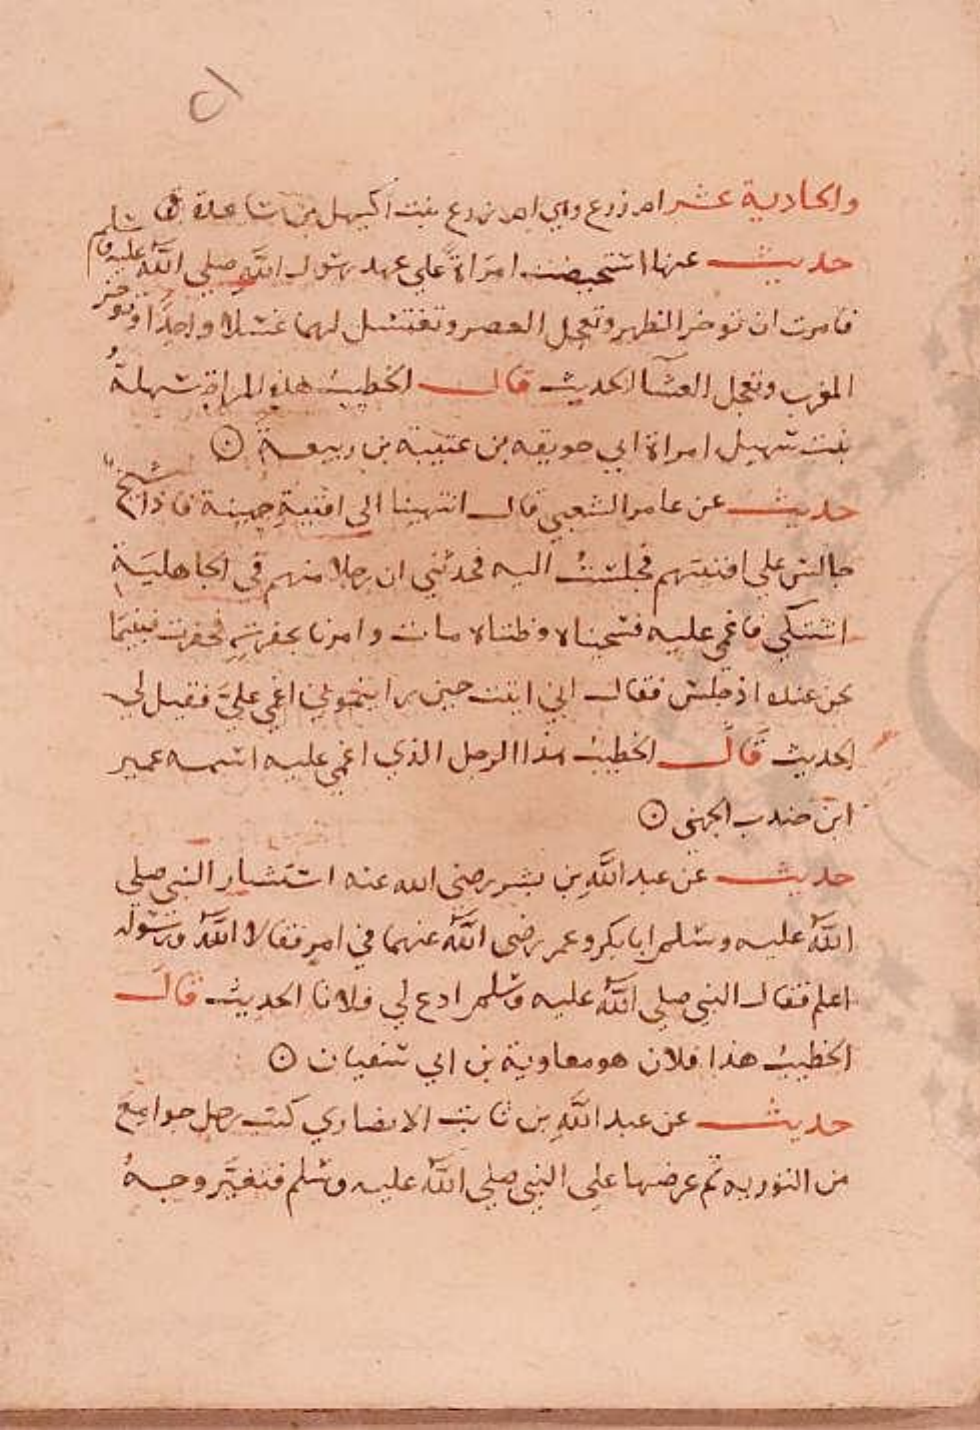 والحادية عشر ام زرع وهي ام زرع بنت اكيهل بن ساعدة
حديث عنها استحيضت امرأة علي عهد رسول الله صلي الله عليه وسلم
فامرت ان توخر الظهر وتعجل العصر وتغتسل لهما غسلا واحدًا وتوخر
المغرب وتعجل العشآ الحديث قال الخطيب هذه المراة سهلةُ
بنت سهيل امراة ابي حذيفه بن عتيبة بن ربيعة
حديث عن عامر الشعبي قال انتهينا الى افنيةِ جهينة فاذا شيخ
جالس علي افنيتهم فجلستُ اليه فحدثني ان رجلا منهم في الجاهليَة
اشتكي فاغمي عليه فسجيناه وظنناه مات وامرنا بحفرته فحفرت فبينما
نحن عنده اذ جلس فقال اني اتيت حين رايتموني اغمي عليَّ فقيل لي
الحديث قال الخطيبُ هذا الرجل الذي اغمي عليه اسمه عمير
ابن جندب الجهني
حديث عن عبد اللَّهِ بن بشر رضي الله عنه استشار النبي صلي
اللَّه عليه وسلم ابا بكر وعمر رضي اللَّه عنهما في امرٍ فقالا اللَّه ورسوله
اعلم فقال النبي صلي اللَّه عليه وسلم ادع لي فلانا الحديث قال
الخطيبُ هذا فلان هو معاوية بن ابي سفيان
حديث عن عبد اللَّهِ بن ثابت الانصاري كتب رجل جوامِعَ
من التوريه ثم عرضها علي النبي صلي اللَّه عليه وسلم فتغيَّر وجهُ